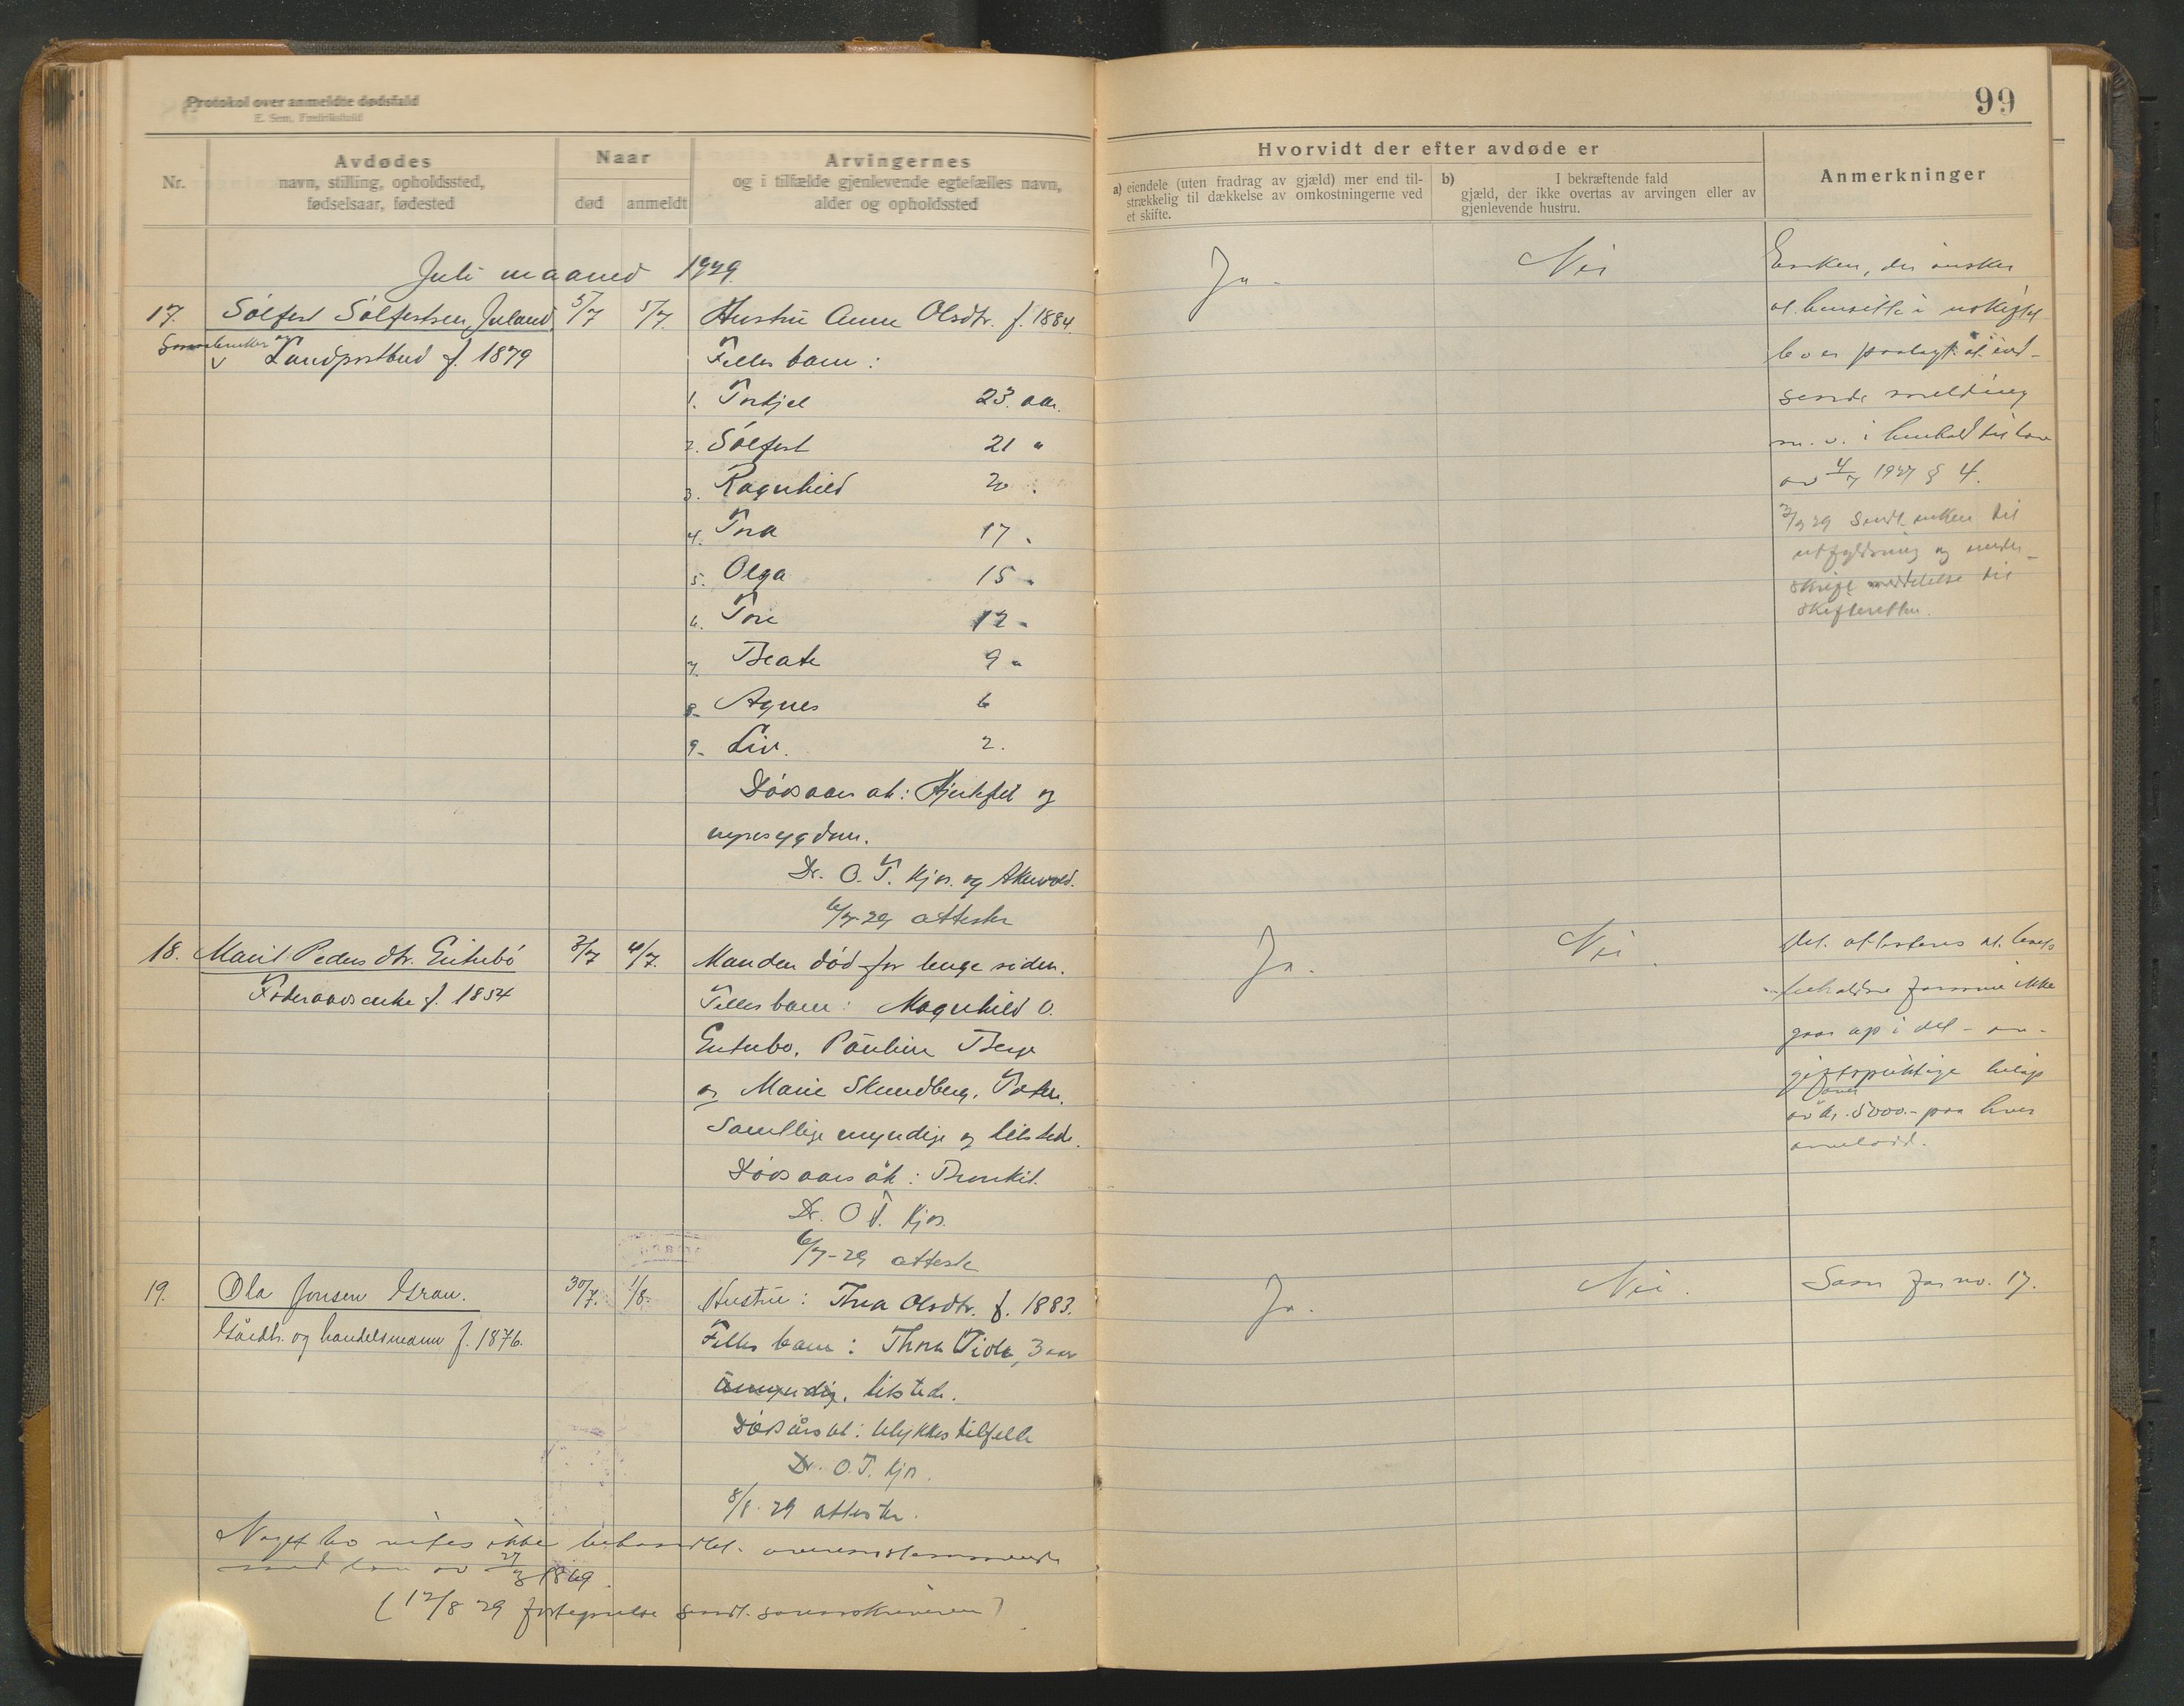 Protokol over anmeldte dødsfald
E. Sem, Fredrikshald
99
Nr.
Avdødes
navn, stilling, opholdssted,
fødselsaar, fødested
Naar
død
anmeldt
Arvingernes
og i tilfælde gjenlevende egtefælles navn,
alder og opholdssted
Hvorvidt der efter avdøde er
a) eiendele (uten fradrag av gjæld) mer end til-
strækkelig til dækkelse av omkostningerne ved
et skifte.
b) I bekræftende fald
gjæld, der ikke overtas av arvingen eller av
gjenlevende hustru.
Anmerkninger
Juli maaned 1929.
17. Sølfest Sølfestsen Juland 5/7 5/7. Hustru Anne Olsdtr. f. 1884.
Gaardbruker og
Landpostbud f. 1879
Felles barn:
1. Torkjel 23 aar.
2. Sølfest 21 "
3. Ragnhild 20
4. Tora 17
5. Olga 15
6. Tore 12
7. Beate 9 "
8. Agnes 6
9. Liv. 2.
Dødsaarsak: Hjertefel og
nyresygdom.
Dr. O. T. Kjos. og Akervold.
6/7-29 attester
Ja.
Nei
Enken, der ønsker
at hensitte i uskiftet
bo er paalagt at ind-
sende melding
m. v. i henhold til lov
av 4/7 1927 § 4.
29 Sendt enken til
utfyldning og under-
skrift meddelelse til
skifteretten.
18. Marit Pedersdtr. Enterbø 3/7 4/7. Manden død for lenge siden.
Føderaadsenke f. 1854
Felles barn: Magnhild O.
Enterbo, Pauline Berge
og Marie Skundberg,
Samtlige myndige og tilstede.
Dødsaarsak: Bronkit.
Dr. O. T. Kjos.
6/7-29 attest
Ja.
Nei.
Det attesteres at boets
beholdne formue ikke
gaar op i det
avgiftspliktige beløp
over
av kr. 5000.- paa hver
arvelodd.
19. Ola Jonsen Grau. 30/7. 1/8. Hustru: Thea Olsdtr. f. 1883.
Gårdbr. og handelsmann f. 1876.
Felles barn: Thora 3 aar
umyndig, tilstede.
Dødsårsak: Ulykkestilfelle
Dr. O. T. Kjos.
8/8. 29 attester.
Ja.
Nei.
Som for no. 17.
Noget bo vites ikke behandlet overensstemmende
med lov av 27/3 1869.
(12/8 29 fortegnelse sendt sorenskriveren)